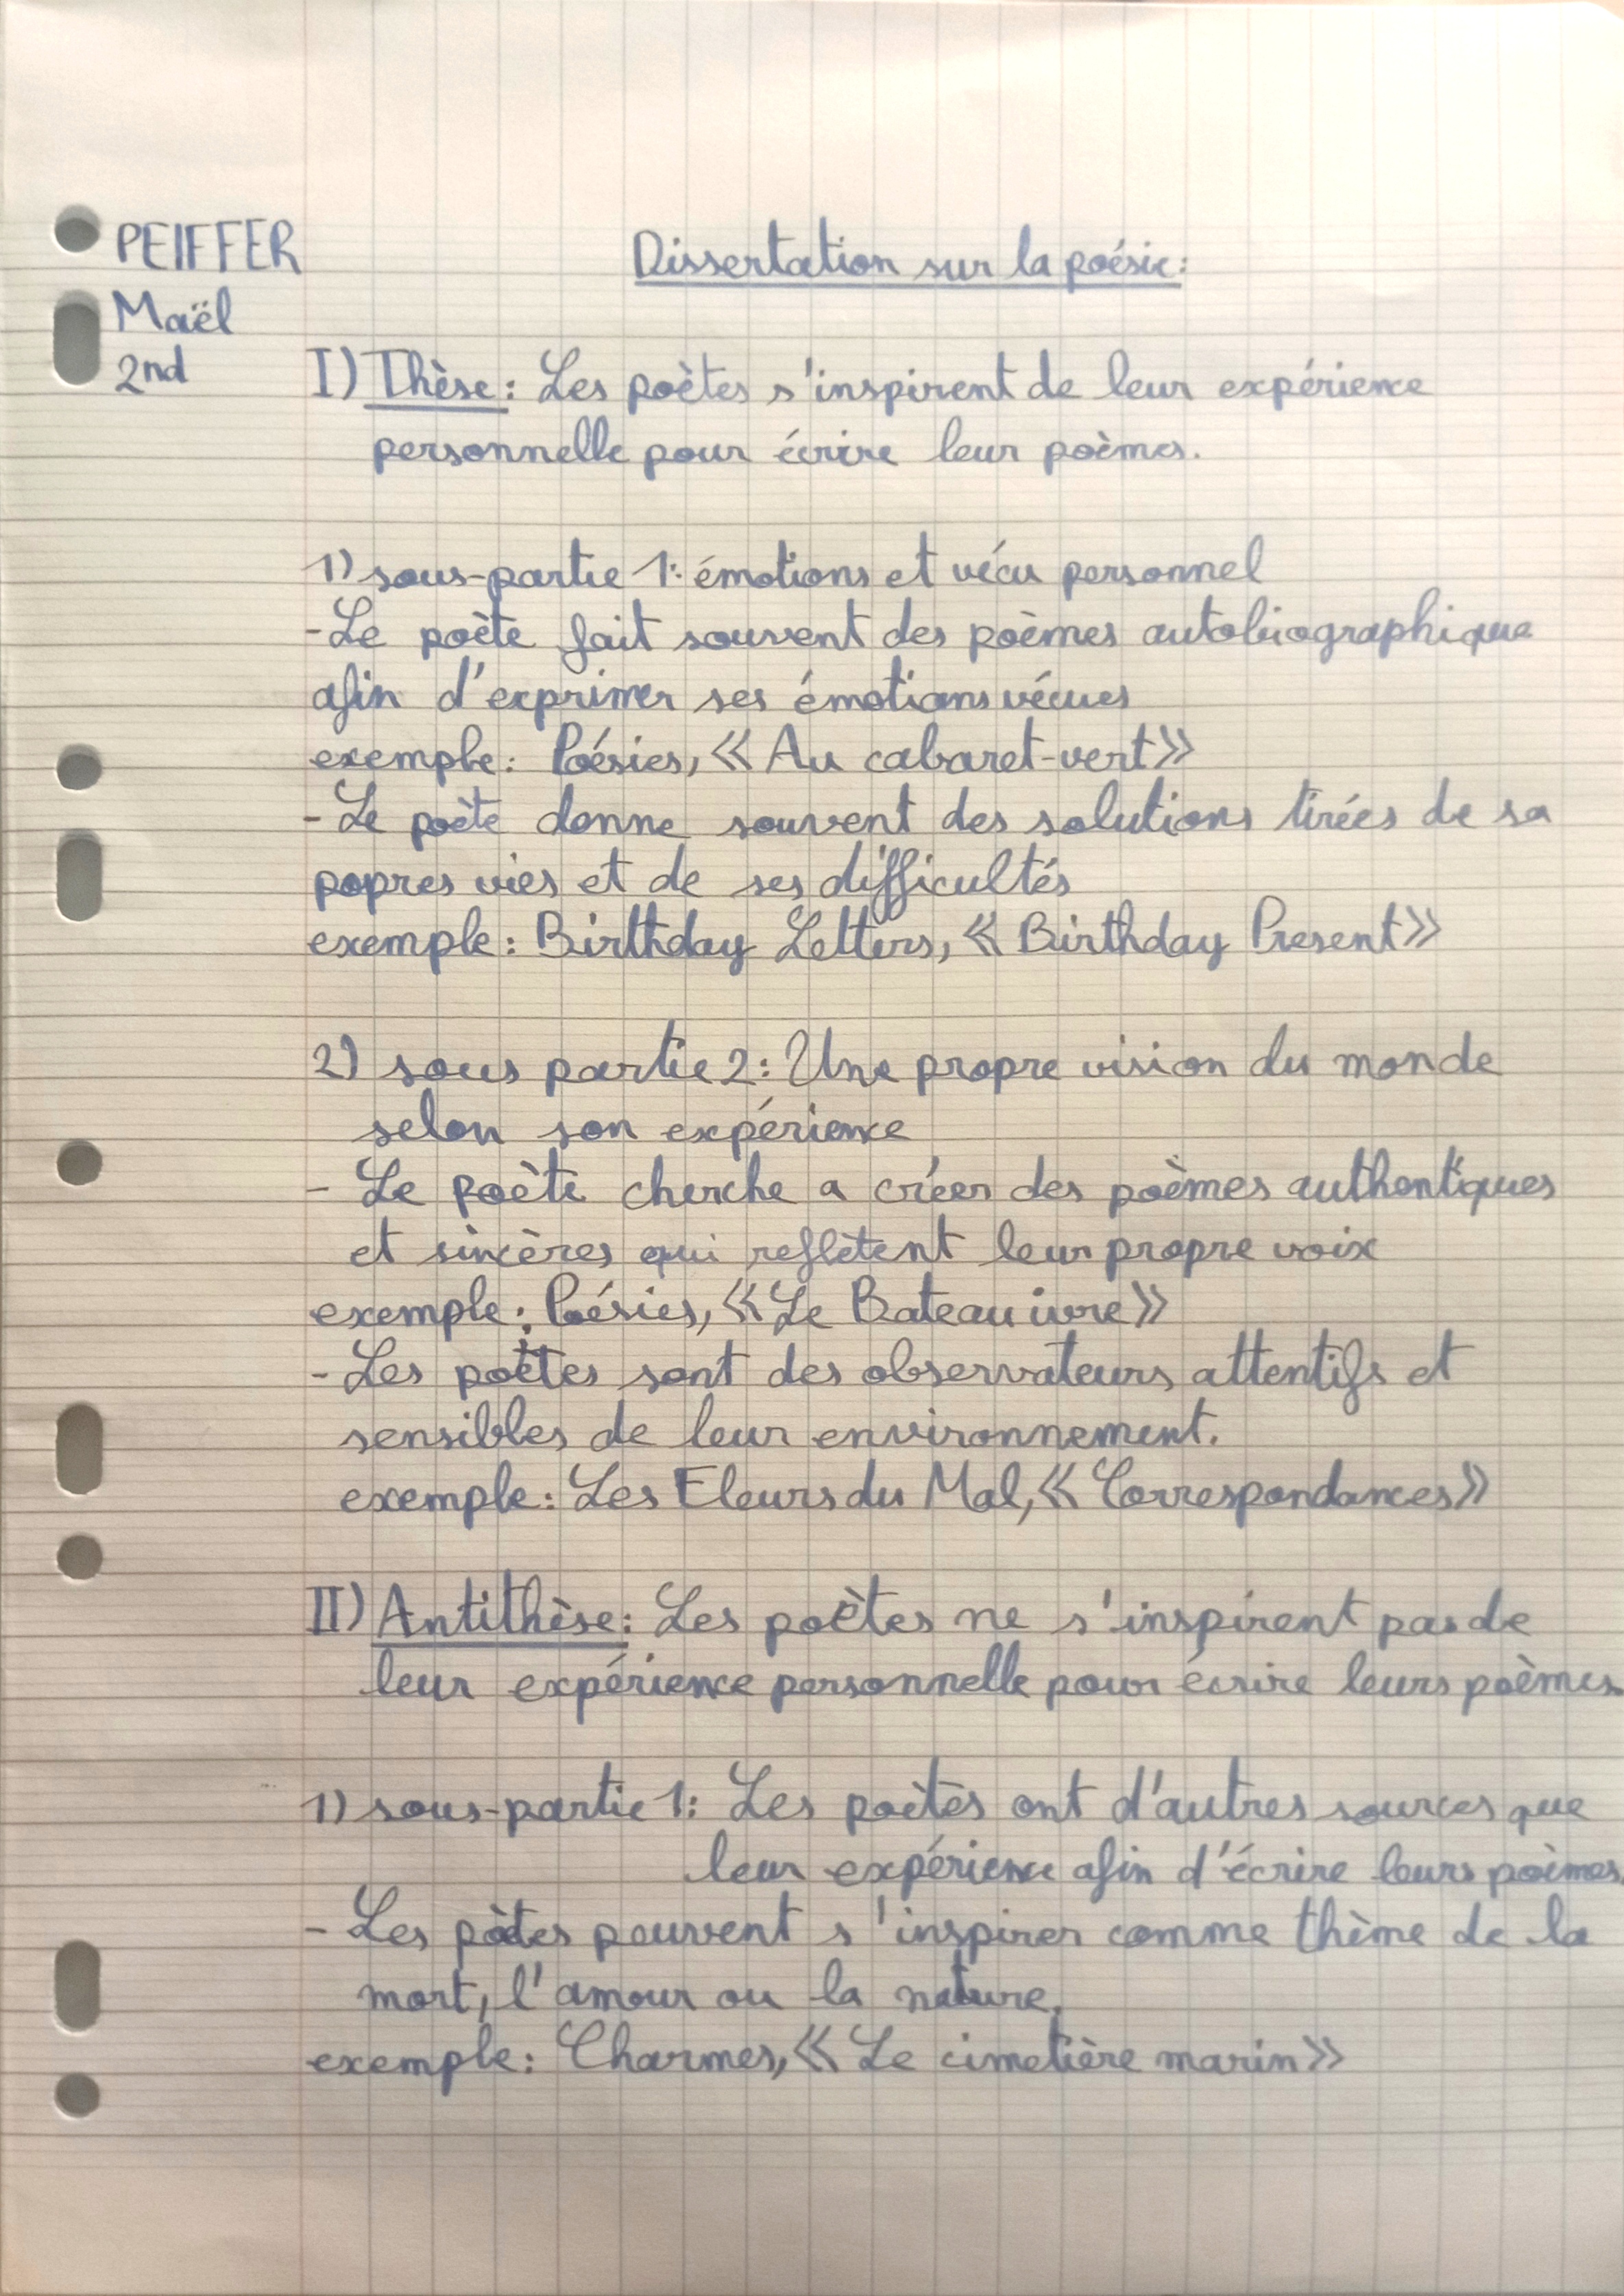 PEIFFER
Maël
2nd
Dissertation sur la poésie:
I) Thèse: Les poètes s'inspirent de leur expérience
personnelle pour écrire leur poèmes.
1) sous-partie 1: émotions et vécu personnel
- Le poète fait souvent des poèmes autobiographique
afin d'exprimer ses émotions vécues
exemple: Poésies, « Au cabaret-vert »
- Le poète donne souvent des solutions tirées de sa
popres vies et de ses difficultés
exemple: Birthday Letters, « Birthday Present »
2) sous partie 2: Une propre vision du monde
selon son expérience
- Le poète cherche a créer des poèmes authentiques
et sincères qui reflètent leur propre voix
exemple: Poésies, « Le Bateau ivre »
- Les poètes sont des observateurs attentifs et
sensibles de leur environnement.
exemple: Les Fleurs du Mal, « Correspondances »
II) Antithèse: Les poètes ne s'inspirent pas de
leur expérience personnelle pour écrire leurs poèmes
1) sous-partie 1: Les poètes ont d'autres sources que
leur expérience afin d'écrire leurs poèmes.
- Les poètes peuvent s'inspirer comme thème de la
mort, l'amour ou la nature.
exemple: Charmes, « Le cimetière marin »